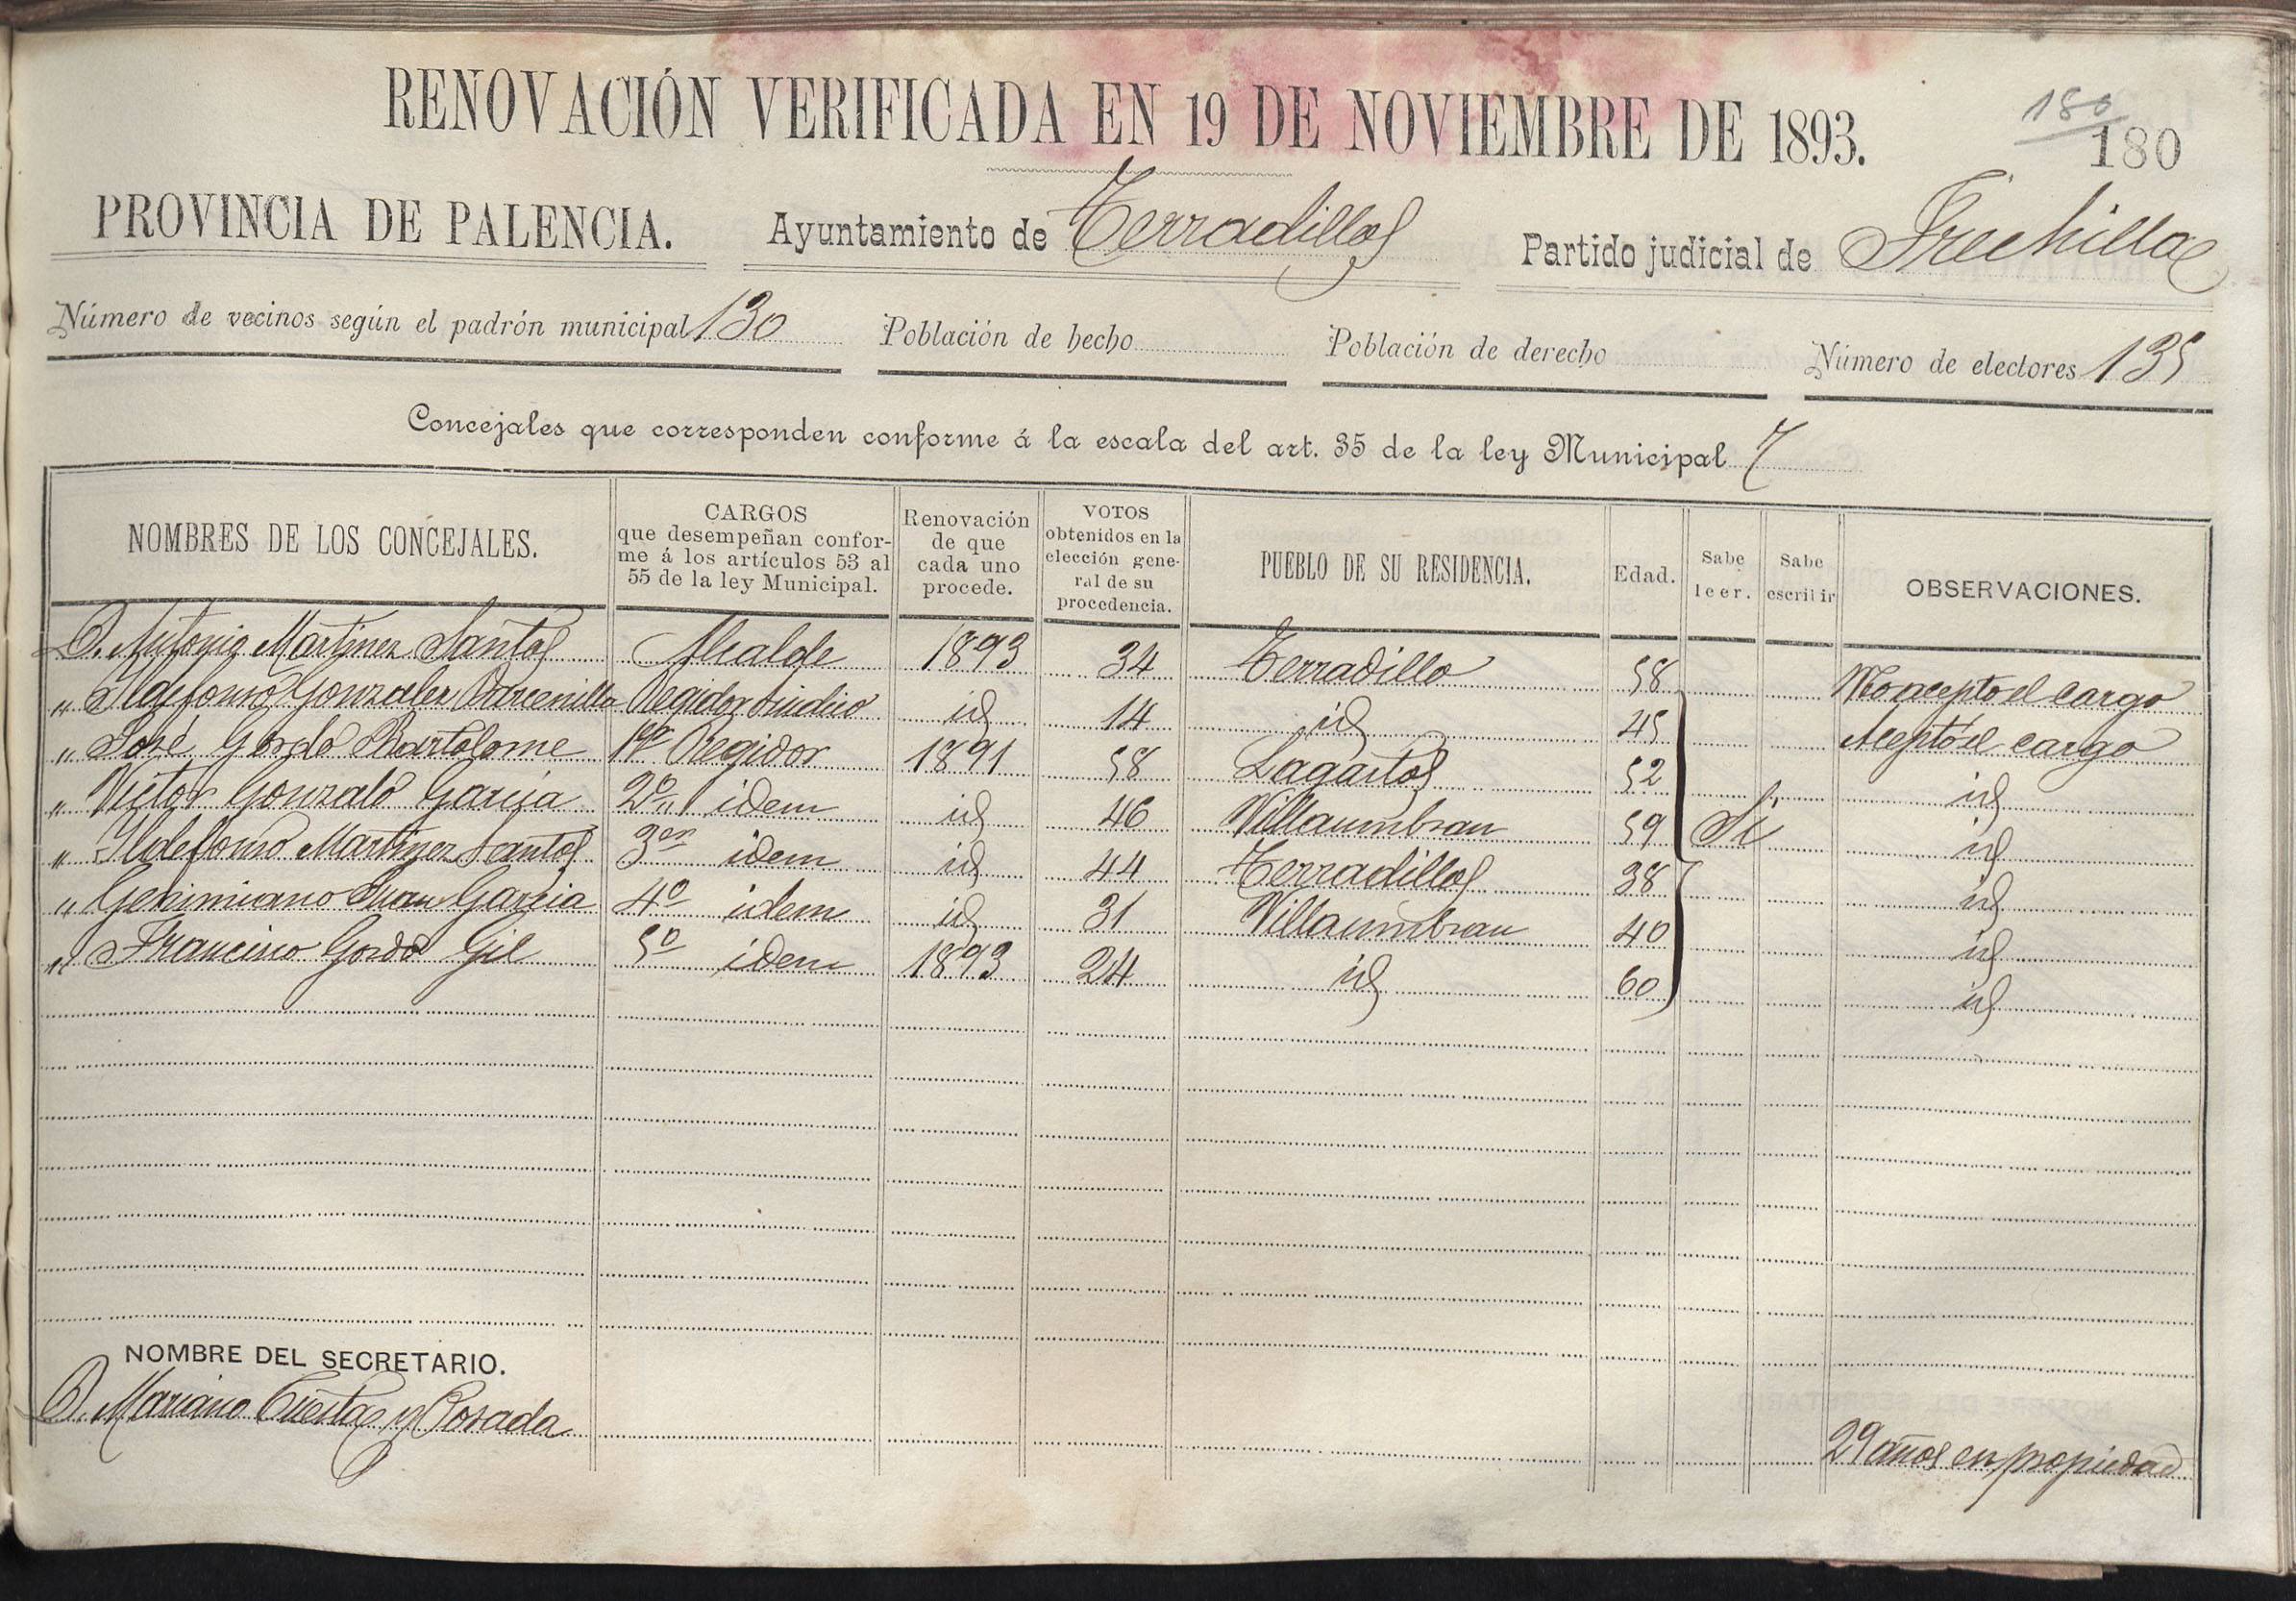 RENOVACIÓN VERIFICADA EN 19 DE NOVIEMBRE DE 1893.
180
180
PROVINCIA DE PALENCIA. Ayuntamiento de Terradillos Partido judicial de Frechilla
Número de vecinos según el padrón municipal 130 Población de hecho Población de derecho Número de electores 135
Concejales que corresponden conforme á la escala del art. 35 de la ley Municipal 7
NOMBRES DE LOS CONCEJALES. CARGOS que desempeñan conforme á los artículos 53 al 55 de la ley Municipal. Renovación de que cada uno procede. VOTOS obtenidos en la elección general de su procedencia. PUEBLO DE SU RESIDENCIA. Edad. Sabe leer. Sabe escribir OBSERVACIONES.
D. Antonio Martinez Santos Alcalde 1893 34 Terradillo 58 No acepto el cargo
„ Ildefonso Gonzalez Barcenilla Regidor sindico id 14 id 45 Aceptó el cargo
„ José Gordo Bartolome 1º Regidor 1891 58 Lagartos 52 id
„ Victor Gonzalo Garcia 2º „ idem id 46 Villaumbran 59 Si id
„ Ildefonso Martinez Santos 3er idem id 44 Terradillos 38 id
„ Geminiano Juan Garcia 4º idem id 31 Villaumbran 40 id
„ Francisco Gordo Gil 5º idem 1893 24 id 60 id
NOMBRE DEL SECRETARIO.
D. Mariano Cuesta y Posada 29 años en propiedad